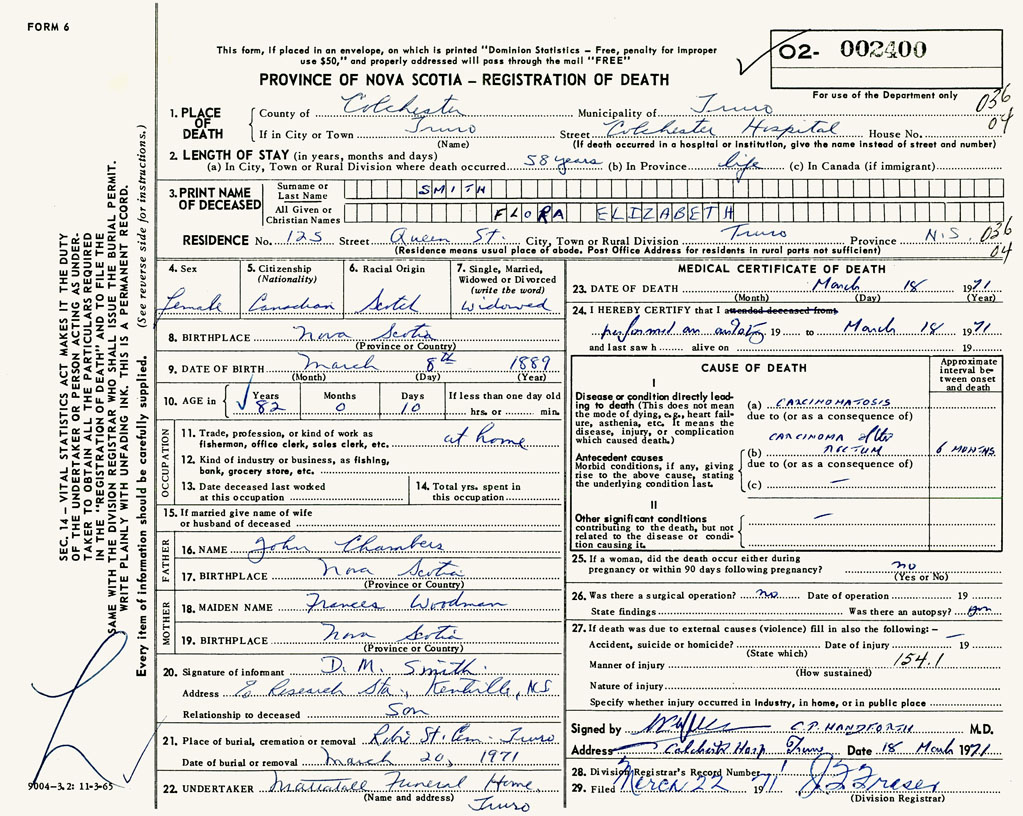 FORM 6
This form, if placed in an envelope, on which is printed "Dominion Statistics – Free, penalty for improper
use $50," and properly addressed will pass through the mail "FREE"
PROVINCE OF NOVA SCOTIA – REGISTRATION OF DEATH
O2- 002400
For use of the Department only
036
04
1. PLACE OF DEATH
County of Colchester Municipality of Truro
If in City or Town Truro Street Colchester Hospital House No.
(Name) (If death occurred in a hospital or institution, give the name instead of street and number)
2. LENGTH OF STAY (in years, months and days)
(a) In City, Town or Rural Division where death occurred 58 years (b) In Province life (c) In Canada (if immigrant)
3. PRINT NAME OF DECEASED
Surname or Last Name SMITH
All Given or Christian Names FLORA ELIZABETH
RESIDENCE No. 125 Street Queen St. City, Town or Rural Division Truro Province N.S. 036
(Residence means usual place of abode. Post Office Address for residents in rural parts not sufficient) 04
4. Sex
Female
5. Citizenship
(Nationality)
Canadian
6. Racial Origin
Scotch
7. Single, Married,
Widowed or Divorced
(write the word)
Widowed
8. BIRTHPLACE Nova Scotia
(Province or Country)
9. DATE OF BIRTH March 8th 1889
(Month) (Day) (Year)
10. AGE in
Years Months Days If less than one day old
82 0 10 hrs. or min.
OCCUPATION
11. Trade, profession, or kind of work as
fishermon, office clerk, sales clerk, etc. at home
12. Kind of industry or business, as fishing,
bank, grocery store, etc.
13. Date deceased last worked
at this occupation
14. Total yrs. spent in
this occupation
15. If married give name of wife
or husband of deceased
FATHER
16. NAME John Chambers
17. BIRTHPLACE Nova Scotia
(Province or Country)
MOTHER
18. MAIDEN NAME Frances Woodman
19. BIRTHPLACE Nova Scotia
(Province or Country)
20. Signature of informant D. M. Smith
Address Research Sta., Kentville, N.S
Relationship to deceased Son
21. Place of burial, cremation or removal Robie St. Cem. Truro
Date of burial or removal March 20, 1971
22. UNDERTAKER Mattatall Funeral Home
(Name and address) Truro
MEDICAL CERTIFICATE OF DEATH
23. DATE OF DEATH March 18 1971
(Month) (Day) (Year)
24. I HEREBY CERTIFY that I attended deceased from
performed an autopsy 19 to March 18 1971
and last saw h alive on 19
CAUSE OF DEATH
Approximate
interval be-
tween onset
and death
I
Disease or condition directly lead-
ing to death (This does not mean
the mode of dying, e.g., heart fail-
ure, asthenia, etc. It means the
disease, injury, or complication
which caused death.)
(a) CARCINOMATOSIS
due to (or as a consequence of)
Antecedent causes
Morbid conditions, if any, giving
rise to the above cause, stating
the underlying condition last.
CARCINOMA of the
(b) RECTUM 6 MONTHS
due to (or as a consequence of)
(c) –
II
Other significant conditions
contributing to the death, but not
related to the disease or condi-
tion causing it.
–
25. If a woman, did the death occur either during
pregnancy or within 90 days following pregnancy? no
(Yes or No)
26. Was there a surgical operation? no. Date of operation 19
State findings Was there an autopsy? yes
27. If death was due to external causes (violence) fill in also the following: –
Accident, suicide or homicide? Date of injury – 19
(State which)
Manner of injury 154.1
(How sustained)
Nature of injury
Specify whether injury occurred in industry, in home, or in public place
Signed by C.P. HANDFORTH M.D.
Address Colchester Hosp Truro Date 18 March 1971
28. Division Registrar's Record Number
29. Filed March 22 1971 Fraser
(Division Registrar)
SEC. 14 – VITAL STATISTICS ACT MAKES IT THE DUTY
OF THE UNDERTAKER OR PERSON ACTING AS UNDER-
TAKER TO OBTAIN ALL THE PARTICULARS REQUIRED
IN THE "REGISTRATION OF DEATH" AND TO FILE THE
SAME WITH THE DIVISION REGISTRAR WHO SHALL ISSUE THE BURIAL PERMIT.
WRITE PLAINLY WITH UNFADING INK. THIS IS A PERMANENT RECORD.
Every item of information should be carefully supplied. (See reverse side for instructions.)
9004-3.2: 11-3-65